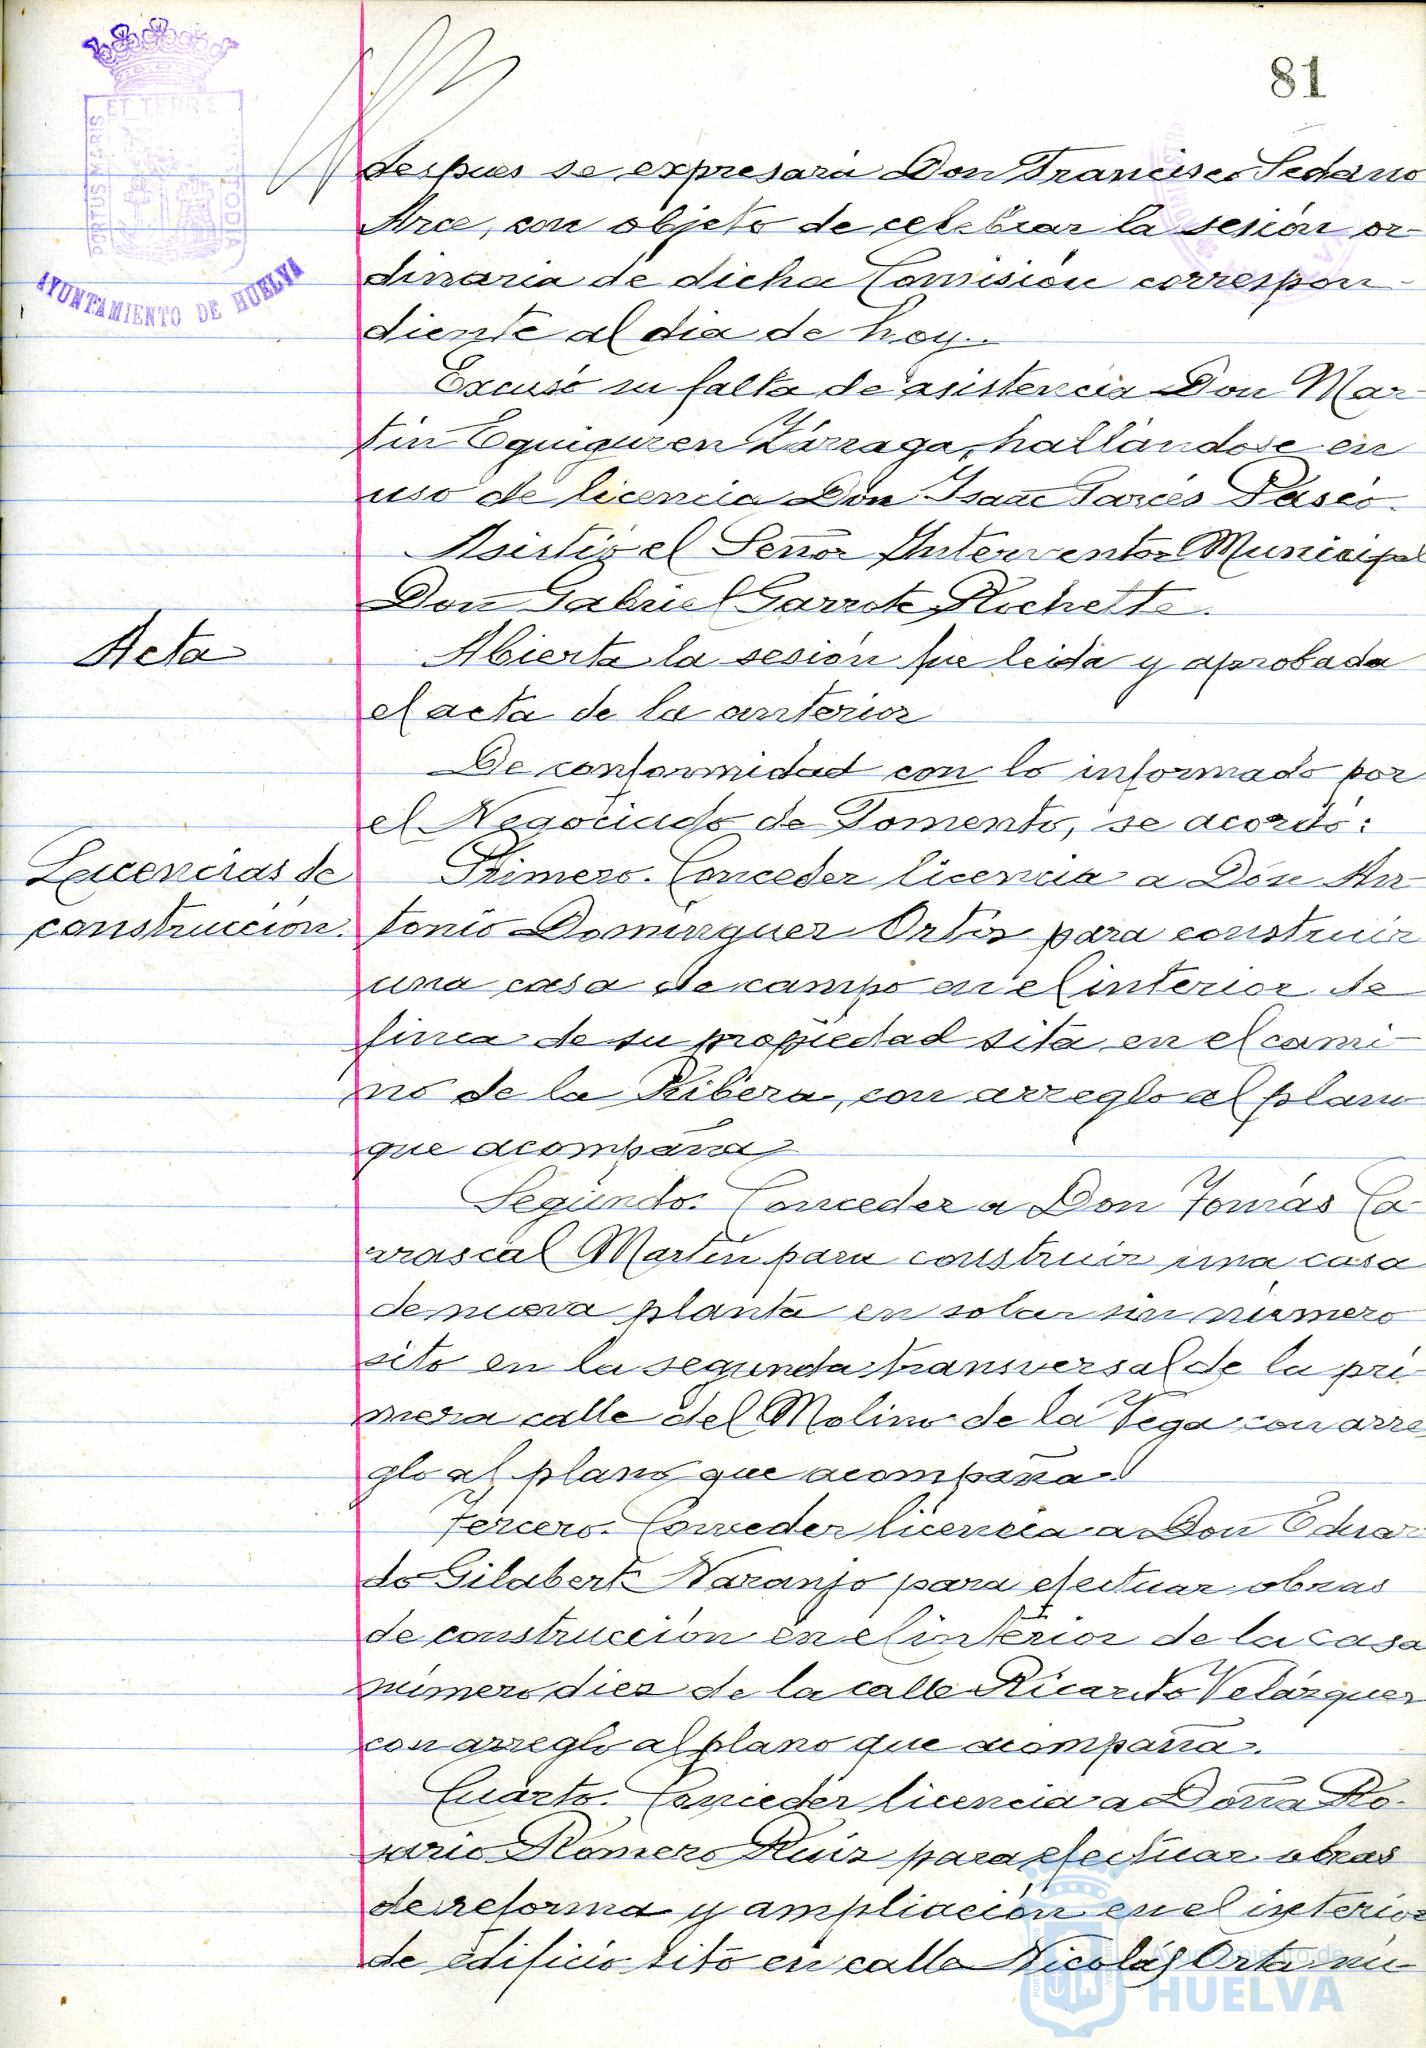 81
PORTUS MARIS ET TERRE CUSTODIA
AYUNTAMIENTO DE HUELVA
despues se expresará Don Francisco Sedano
Arce, con objeto de celebrar la sesión or-
dinaria de dicha Comisión correspon-
diente al dia de hoy.
Excusó su falta de asistencia Don Mar-
tín Eguiguren Zárraga, hallándose en
uso de licencia Don Isaac Garcés
Asistió el Señor Interventor Municipal
Don Gabriel Garrote Rochette.
Acta
Abierta la sesión fue leida y aprobada
el acta de la anterior
De conformidad con lo informado por
el Negociado de Fomento, se acordó:
Licencias de
construcción.
Primero. Conceder licencia a Don An-
tonio Dominguez Ortiz para construir
una casa de campo en el interior de
finca de su propiedad sita en el cami-
no de la Ribera, con arreglo al plano
que acompaña
Segundo. Conceder a Don Tomás Ca-
rrascal Martín para construir una casa
de nueva planta en solar sin número
sito en la segunda transversal de la pri-
mera calle del Molino de la Vega con arre-
glo al plano que acompaña.
Tercero. Conceder licencia a Don Eduar-
do Gilabert Naranjo para efectuar obras
de construcción en el interior de la casa
número diez de la calle Ricardo Velázquez
con arreglo al plano que acompaña.
Cuarto. Conceder licencia a Doña Ro-
sario Romero Ruiz para efectuar obras
de reforma y ampliación en el interior
de edificio sito en calle Nicolás Orta nú-
Ayuntamiento de
HUELVA